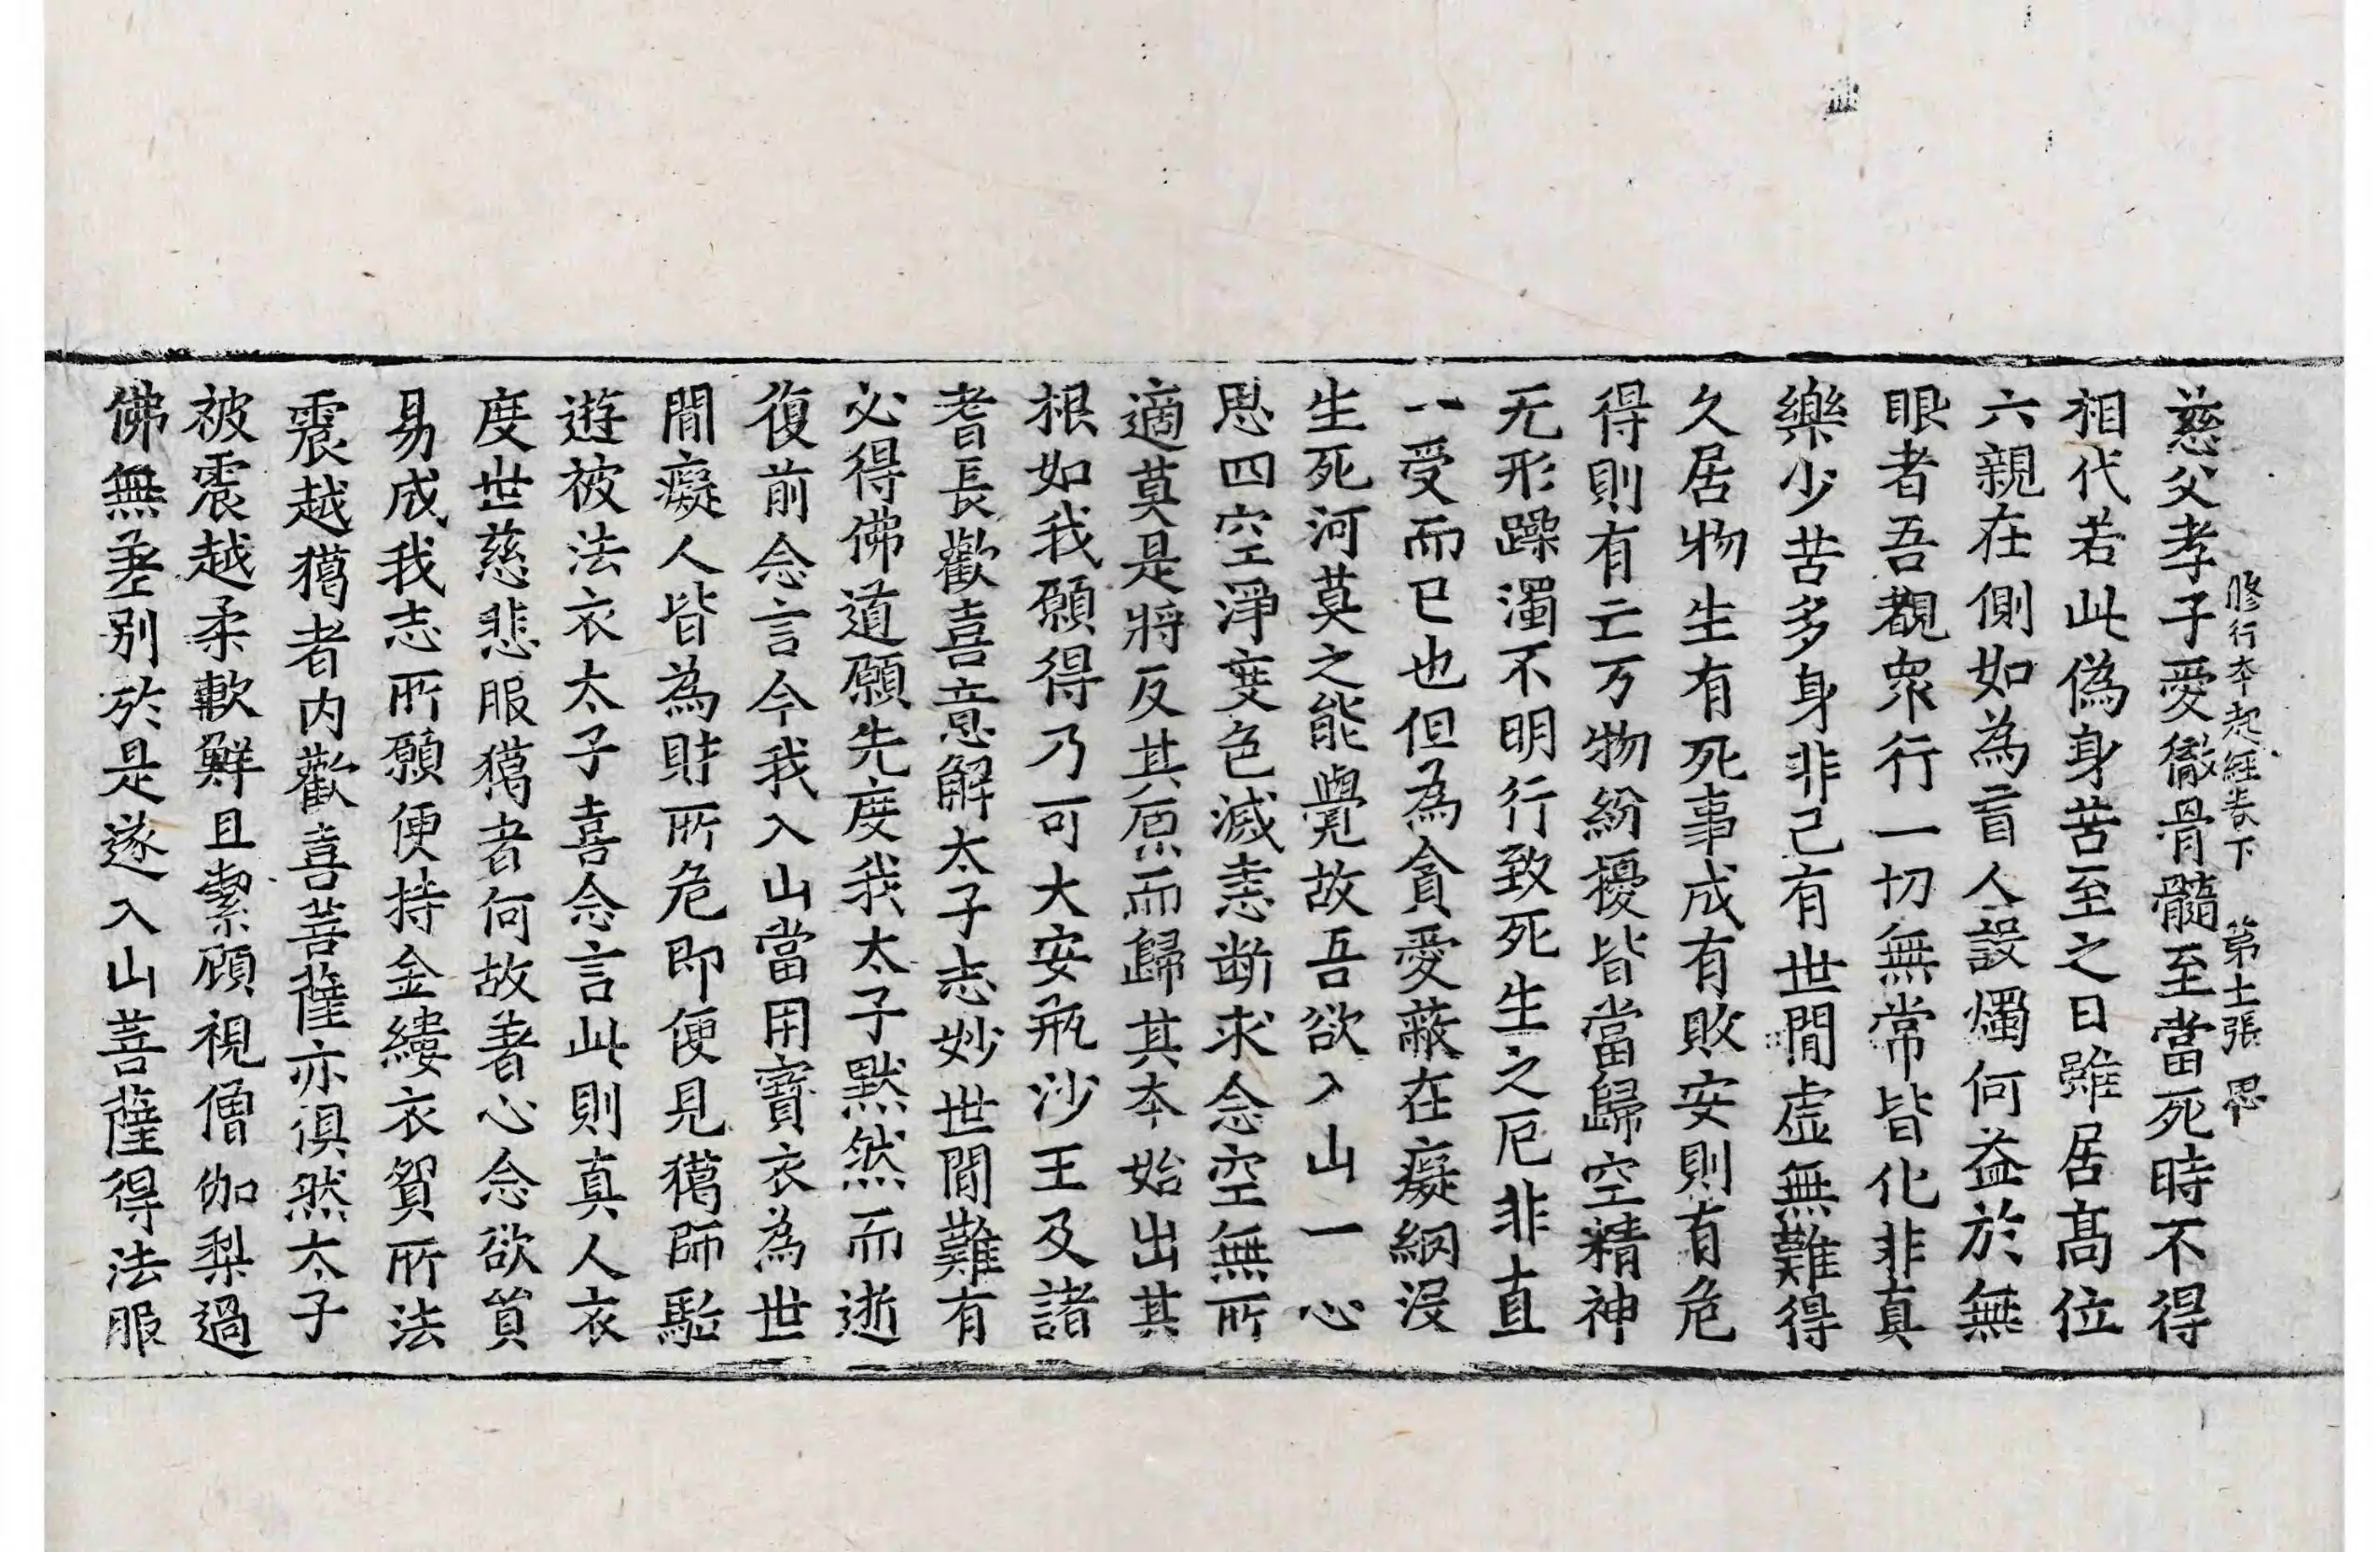 修行本起經卷下　第十二張　思
慈父孝子愛徹骨髓至當死時不得
相代若此偽身苦至之日雖居髙位
六親在側如為盲人設燭何益於無
眼者吾觀衆行一切無常皆化非真
樂少苦多身非己有世間虚無難得
久居物生有死事成有敗安則有危
得則有亡万物紛擾皆當歸空精神
无形躁濁不明行致死生之厄非直
一受而已也但為貪愛蔽在癡網没
生死河莫之能覺故吾欲入山一心
思四空淨度色滅恚断求念空無所
適莫是將反其原而歸其本始出其
根如我願得乃可大安瓶沙王及諸
耆長歡喜意解太子志妙世間難有
必得佛道願先度我太子黙然而逝
復前念言今我入山當用寶衣為世
間癡人皆為財所危即便見獦師駈
遊被法衣太子喜念言此則真人衣
度世慈悲服獦者何故著心念欲貿
易成我志所願便持金縷衣貿所法
震越獦者内歡喜菩薩亦俱然太子
被震越柔軟鮮且潔顧視僧伽梨過
佛無差別於是遂入山菩薩得法服